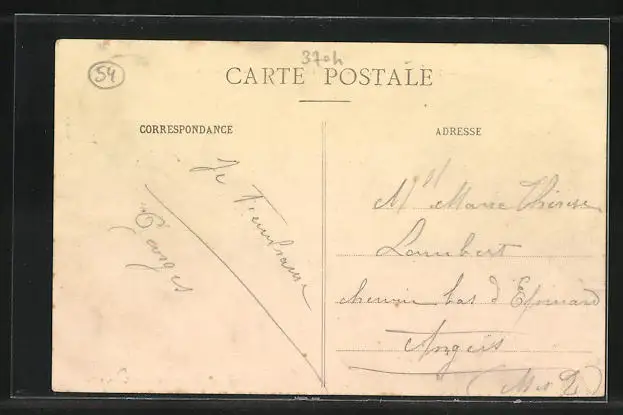 54
37oh
CARTE POSTALE
CORRESPONDANCE
ADRESSE
Je
Georges
Mlle Marie Thérèse
Lambert
chemin bas d'Epinard
Angers
(M et L)